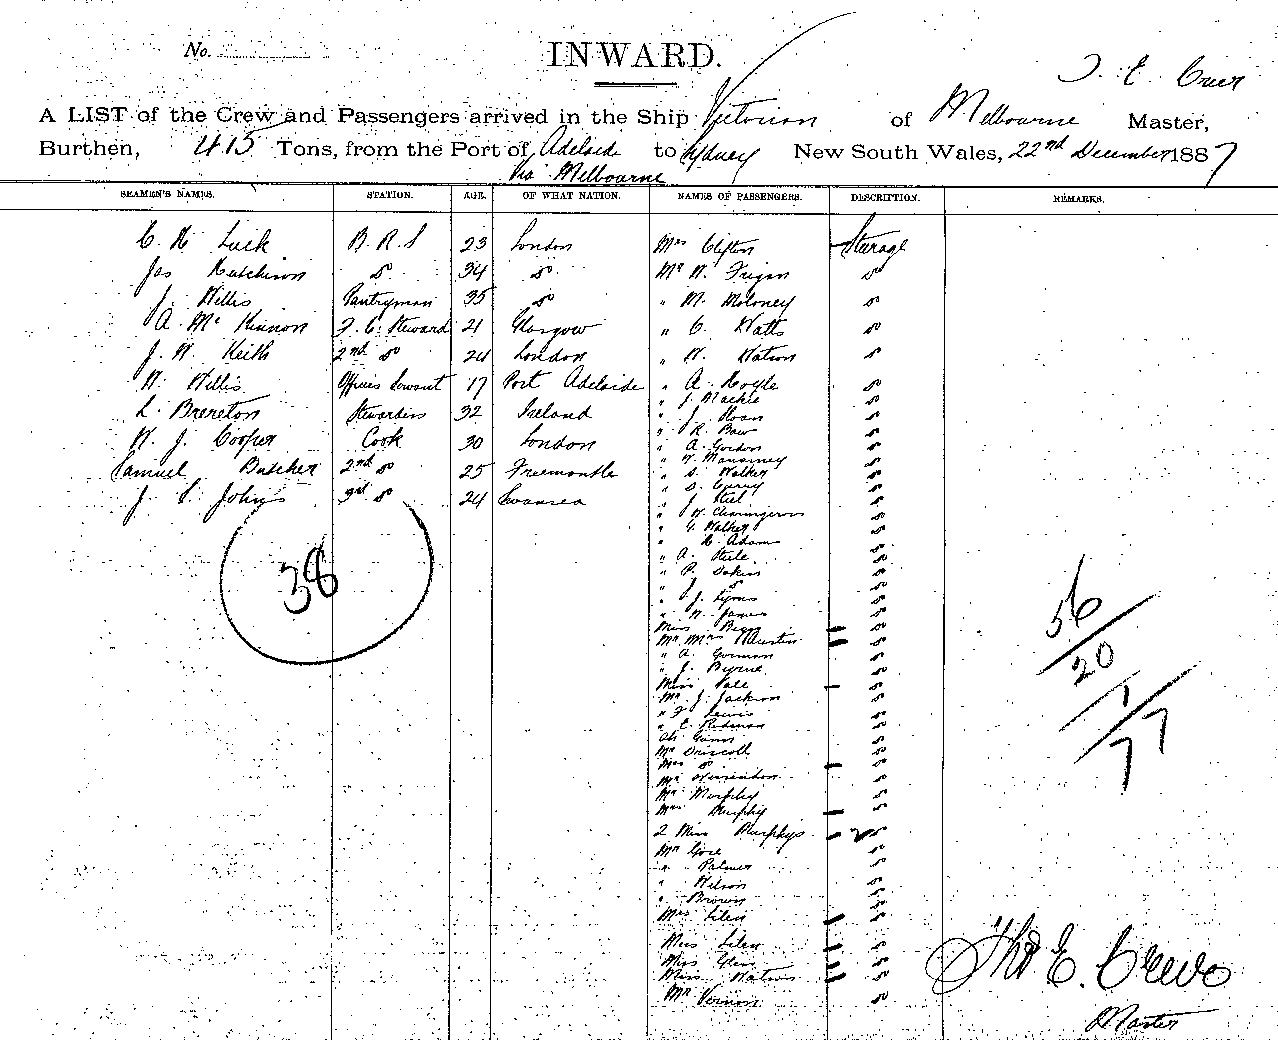 No.
INWARD.
A LIST of the Crew and Passengers arrived in the Ship Victorian of Melbourne Master,
Burthen, 415 Tons, from the Port of Adelaide to Sydney New South Wales, 22nd December 1887
Via Melbourne
SEAMEN'S NAMES. STATION. AGE. OF WHAT NATION. NAMES OF PASSENGERS. DESCRIPTION. REMARKS.
C. H. Luck B. R. S 23 London Mrs Clifton Sturage
Jas Hutchison do 34 do Mr W. Frigan do
J. Willis Pantryman 35 do " M. Moloney do
A. Mc Kinnon F. C. Steward 21 Glasgow " C. Watts do
J. W. Keith 2nd do 24 London " W. Watson do
W. Willis Officers Servant 17 Port Adelaide " A. Hoyle do
" J. Mackie do
L. Brereton Stewardess 32 Ireland " J. Sloan do
" R. Baw do
W. J. Cooper Cook 30 London " A. Gordon do
" do
Samuel Butcher 2nd do 25 Freemantle " S. Walker do
" S. Curry do
J. S. Johns 3rd do 24 Swansea " J. Steel do
" W. do
" G. Walker do
" H. Adam do
" A. Steele do
" P. Dakin do
" J. do do
" J. Lyons do
" W. James do
Miss do
Mr Mrs Austin do
" A. Gorman do
" J. Byrne do
Miss Vale do
Mr J. Jackson do
" F. Lewis do
" E. Redman do
Ah Gunn do
Mr Driscoll do
Mrs do do
Mr do
Mr Murphy do
Mrs Murphy do
2 Miss Murphys 2 do
Mr Gore do
" Palmer do
" Wilson do
" Brown do
Mrs Lilen do
Miss Lilen do
Miss Glen do
Miss Watson do
Mr Vernon do
38
56
20
1
77
Tho E. Creer
Master